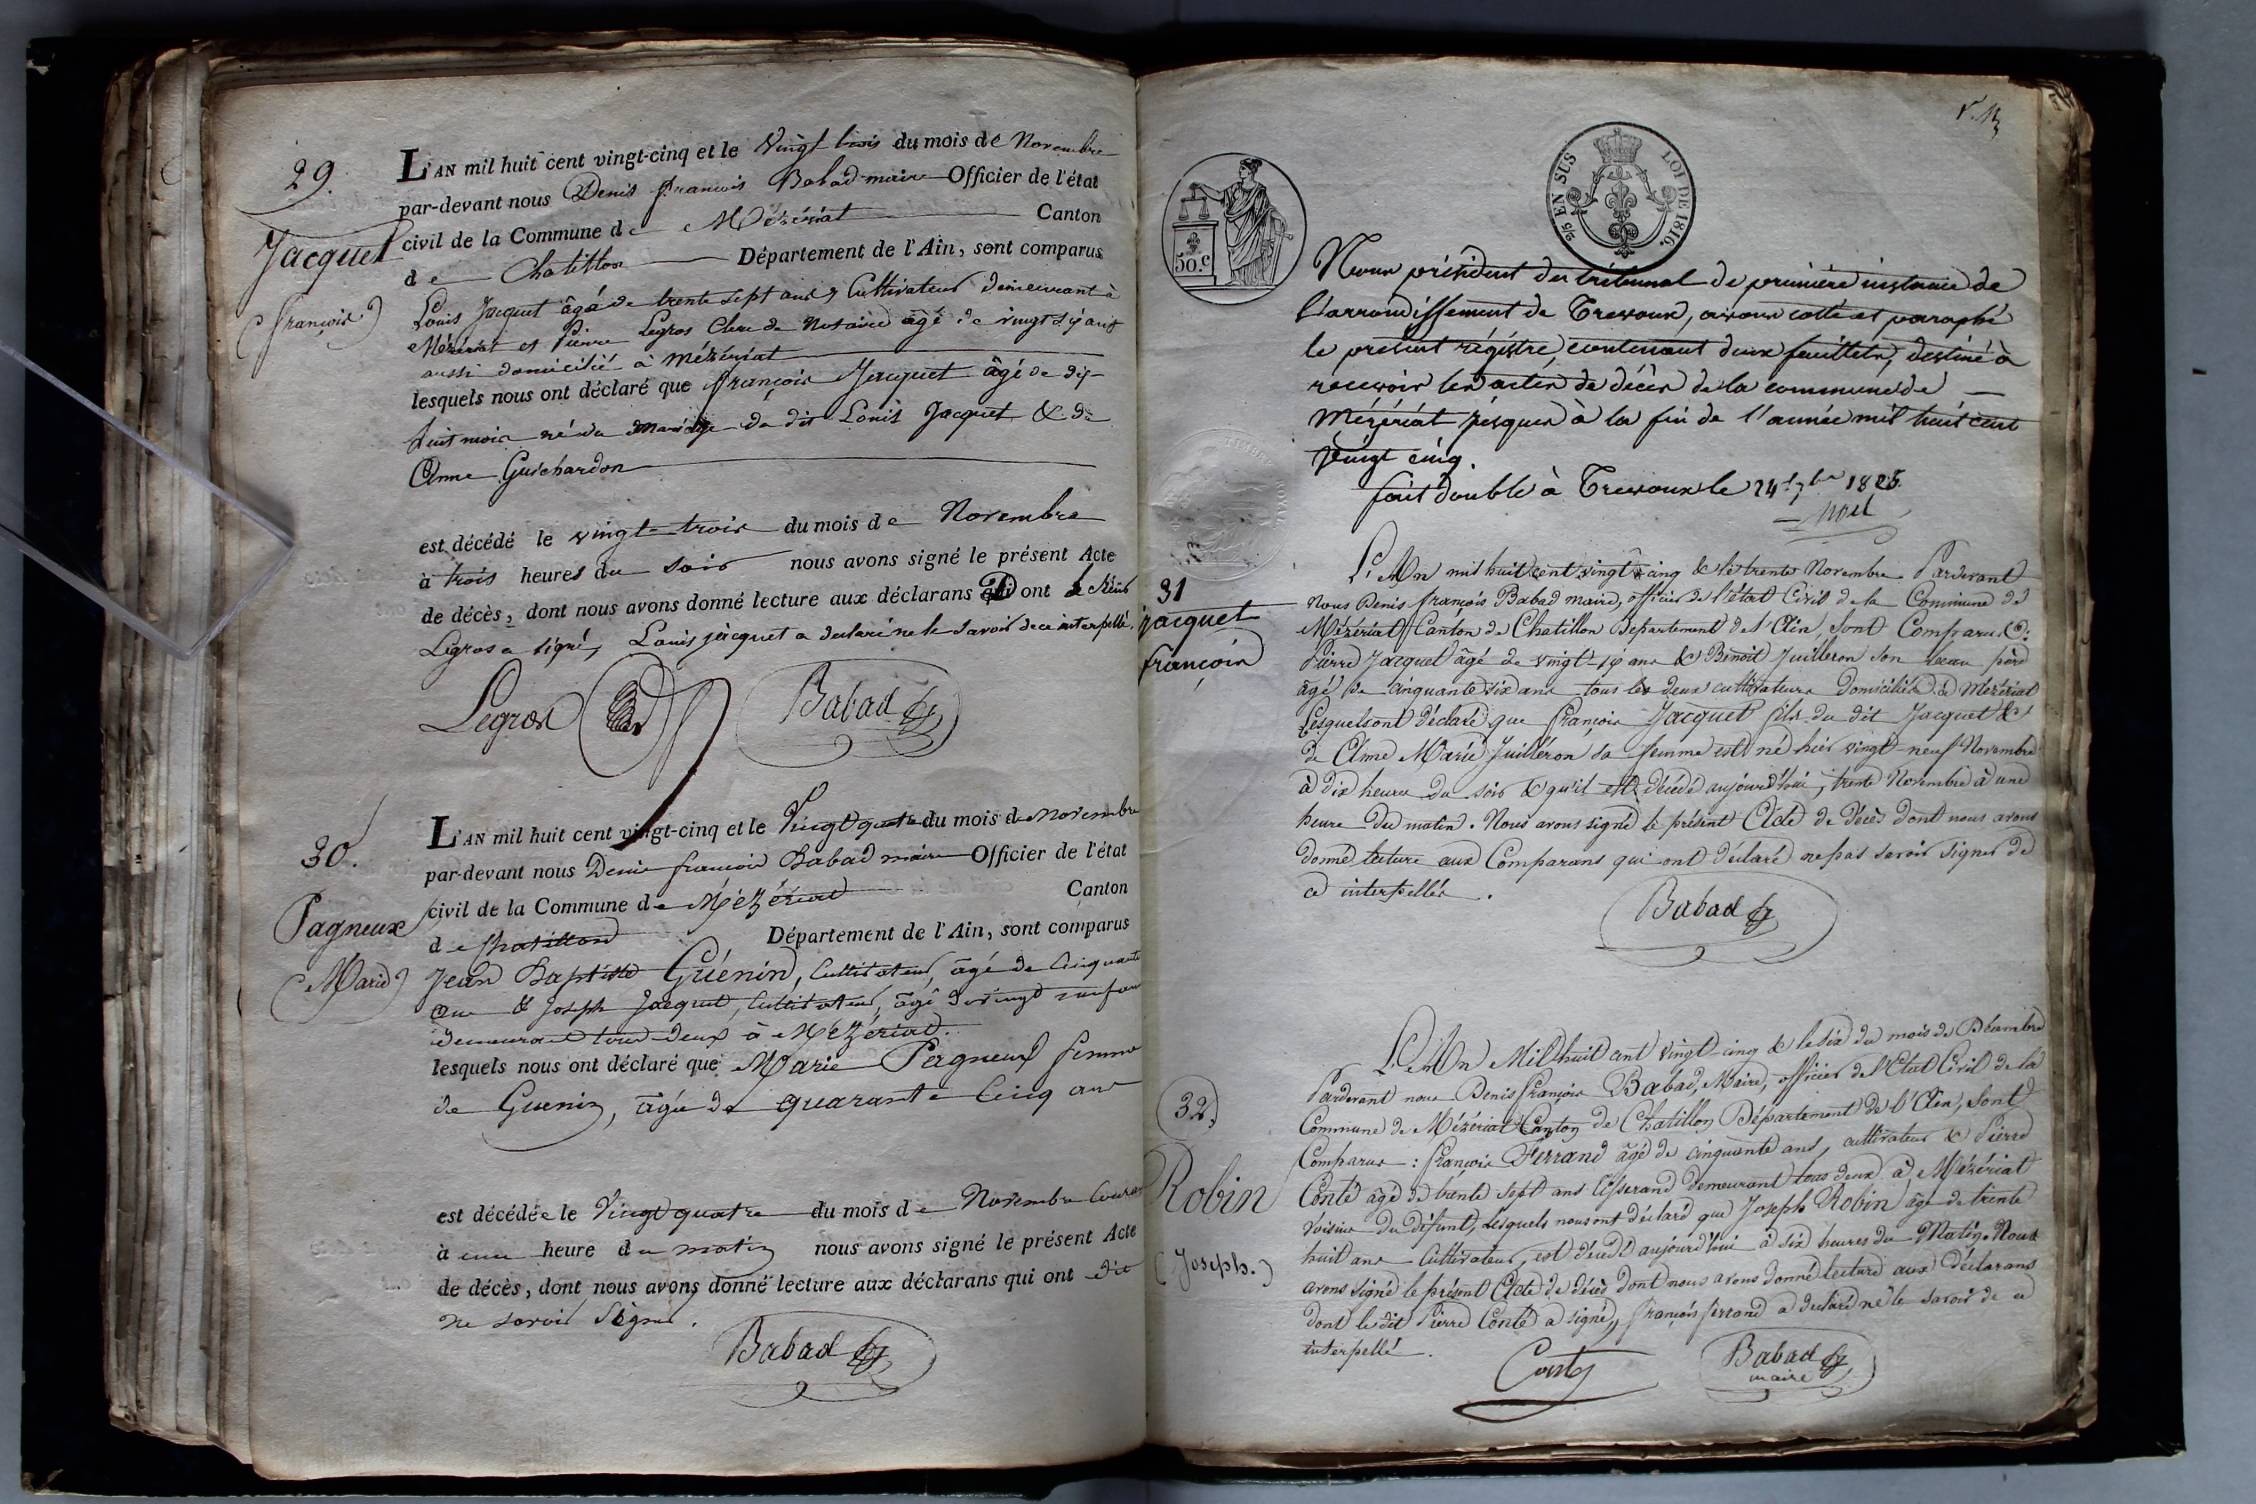 29.
Jacquet
(françois)
L'AN mil huit cent vingt-cinq et le Vingt trois du mois de Novembre
par-devant nous Denis françois Babad maire Officier de l'état
civil de la Commune de Mézériat Canton
de Chatillon Département de l'Ain, sont comparus
Louis Jacquet âgé de trente sept ans, Cultivateur demeurant à
Mézériat et Pierre Legros Clerc de Notaire âgé de vingt six ans
aussi domicilié à Mézériat
lesquels nous ont déclaré que françois Jacquet âgé de dix-
huit mois né du mariage du dit Louis Jacquet & de
Anne Guichardon
est décédé le vingt-trois du mois de Novembre
à trois heures du soir nous avons signé le présent Acte
de décès, dont nous avons donné lecture aux déclarans Dont le Sieur
Legros a signé, Louis jacquet a déclaré ne le savoir de ce interpellé.
Legros
Babad
30.
Pagneux
(Marie)
L'AN mil huit cent vingt-cinq et le Vingt quatre du mois de Novembre
par-devant nous Denis françois Babad maire Officier de l'état
civil de la Commune de Mézériat Canton
de Chatillon Département de l'Ain, sont comparus
Jean Baptiste Guénin, Cultivateur, âgé de Cinquante
ans & Joseph Jacquet, Cultivateur, âgé de vingt neuf ans
demeurant tous deux à Mézériat.
lesquels nous ont déclaré que Marie Pagneux femme
de Guenin, âgée de quarante Cinq ans
est décédée le Vingt quatre du mois de Novembre Courant
à une heure du matin nous avons signé le présent Acte
de décès, dont nous avons donné lecture aux déclarans qui ont dit
ne savoir Signer.
Babad
2/5 EN SUS LOI DE 1816.
50.c
Nous président du tribunal de première instance de
l'arrondissement de Trevoux, avons cotté et paraphé
le présent régistre, contenant deux feuillets, destiné à
recevoir les actes de décès de la commune de
Mézériat jusques à la fin de l'année mil huit cent
Vingt cinq.
fait double à Trevoux le 24 7bre 1825.
Noël
31
jacquet
françois
L'An mil huit cent vingt cinq & le trente Novembre Pardevant
Nous Denis françois Babad maire, officier de l'état Civil de la Commune de
Mézériat Canton de Chatillon Département de l'Ain, sont Comparus
Pierre Jacquet âgé de vingt-six ans & Benoit Juilleron son beau père
âgé de cinquante six ans tous les deux cultivateurs domiciliés à Mézériat
Lesquels ont déclaré que françois Jacquet fils du dit Jacquet &
de Anne Marie Juilleron sa femme est né hier vingt-neuf Novembre
à dix heures du soir & qu'il est décédé aujourd'hui, trente Novembre à une
heure du matin. Nous avons signé le présent Acte de décès dont nous avons
donné lecture aux Comparans qui ont déclaré ne pas savoir signer de
ce interpellés.
Babad
32.
Robin
(Joseph.)
L'An Mil huit cent vingt-cinq & le six du mois de Décembre
Pardevant nous Denis françois Babad, Maire, officier de l'Etat Civil de la
Commune de Mézériat Canton de Chatillon Département de l'Ain, sont
Comparus : françois Ferrand âgé de cinquante ans, cultivateur & Pierre
Conte âgé de trente sept ans tisserand demeurant tous deux à Mézériat
Voisins du défunt, lesquels nous ont déclaré que Joseph Robin âgé de trente
huit ans Cultivateur, est décédé aujourd'hui à six heures du Matin. Nous
avons signé le présent Acte de décès dont nous avons donné lecture aux déclarans
dont le dit Pierre Conte a signé, françois ferrand a déclaré ne le savoir de ce
interpellé.
Babad
maire